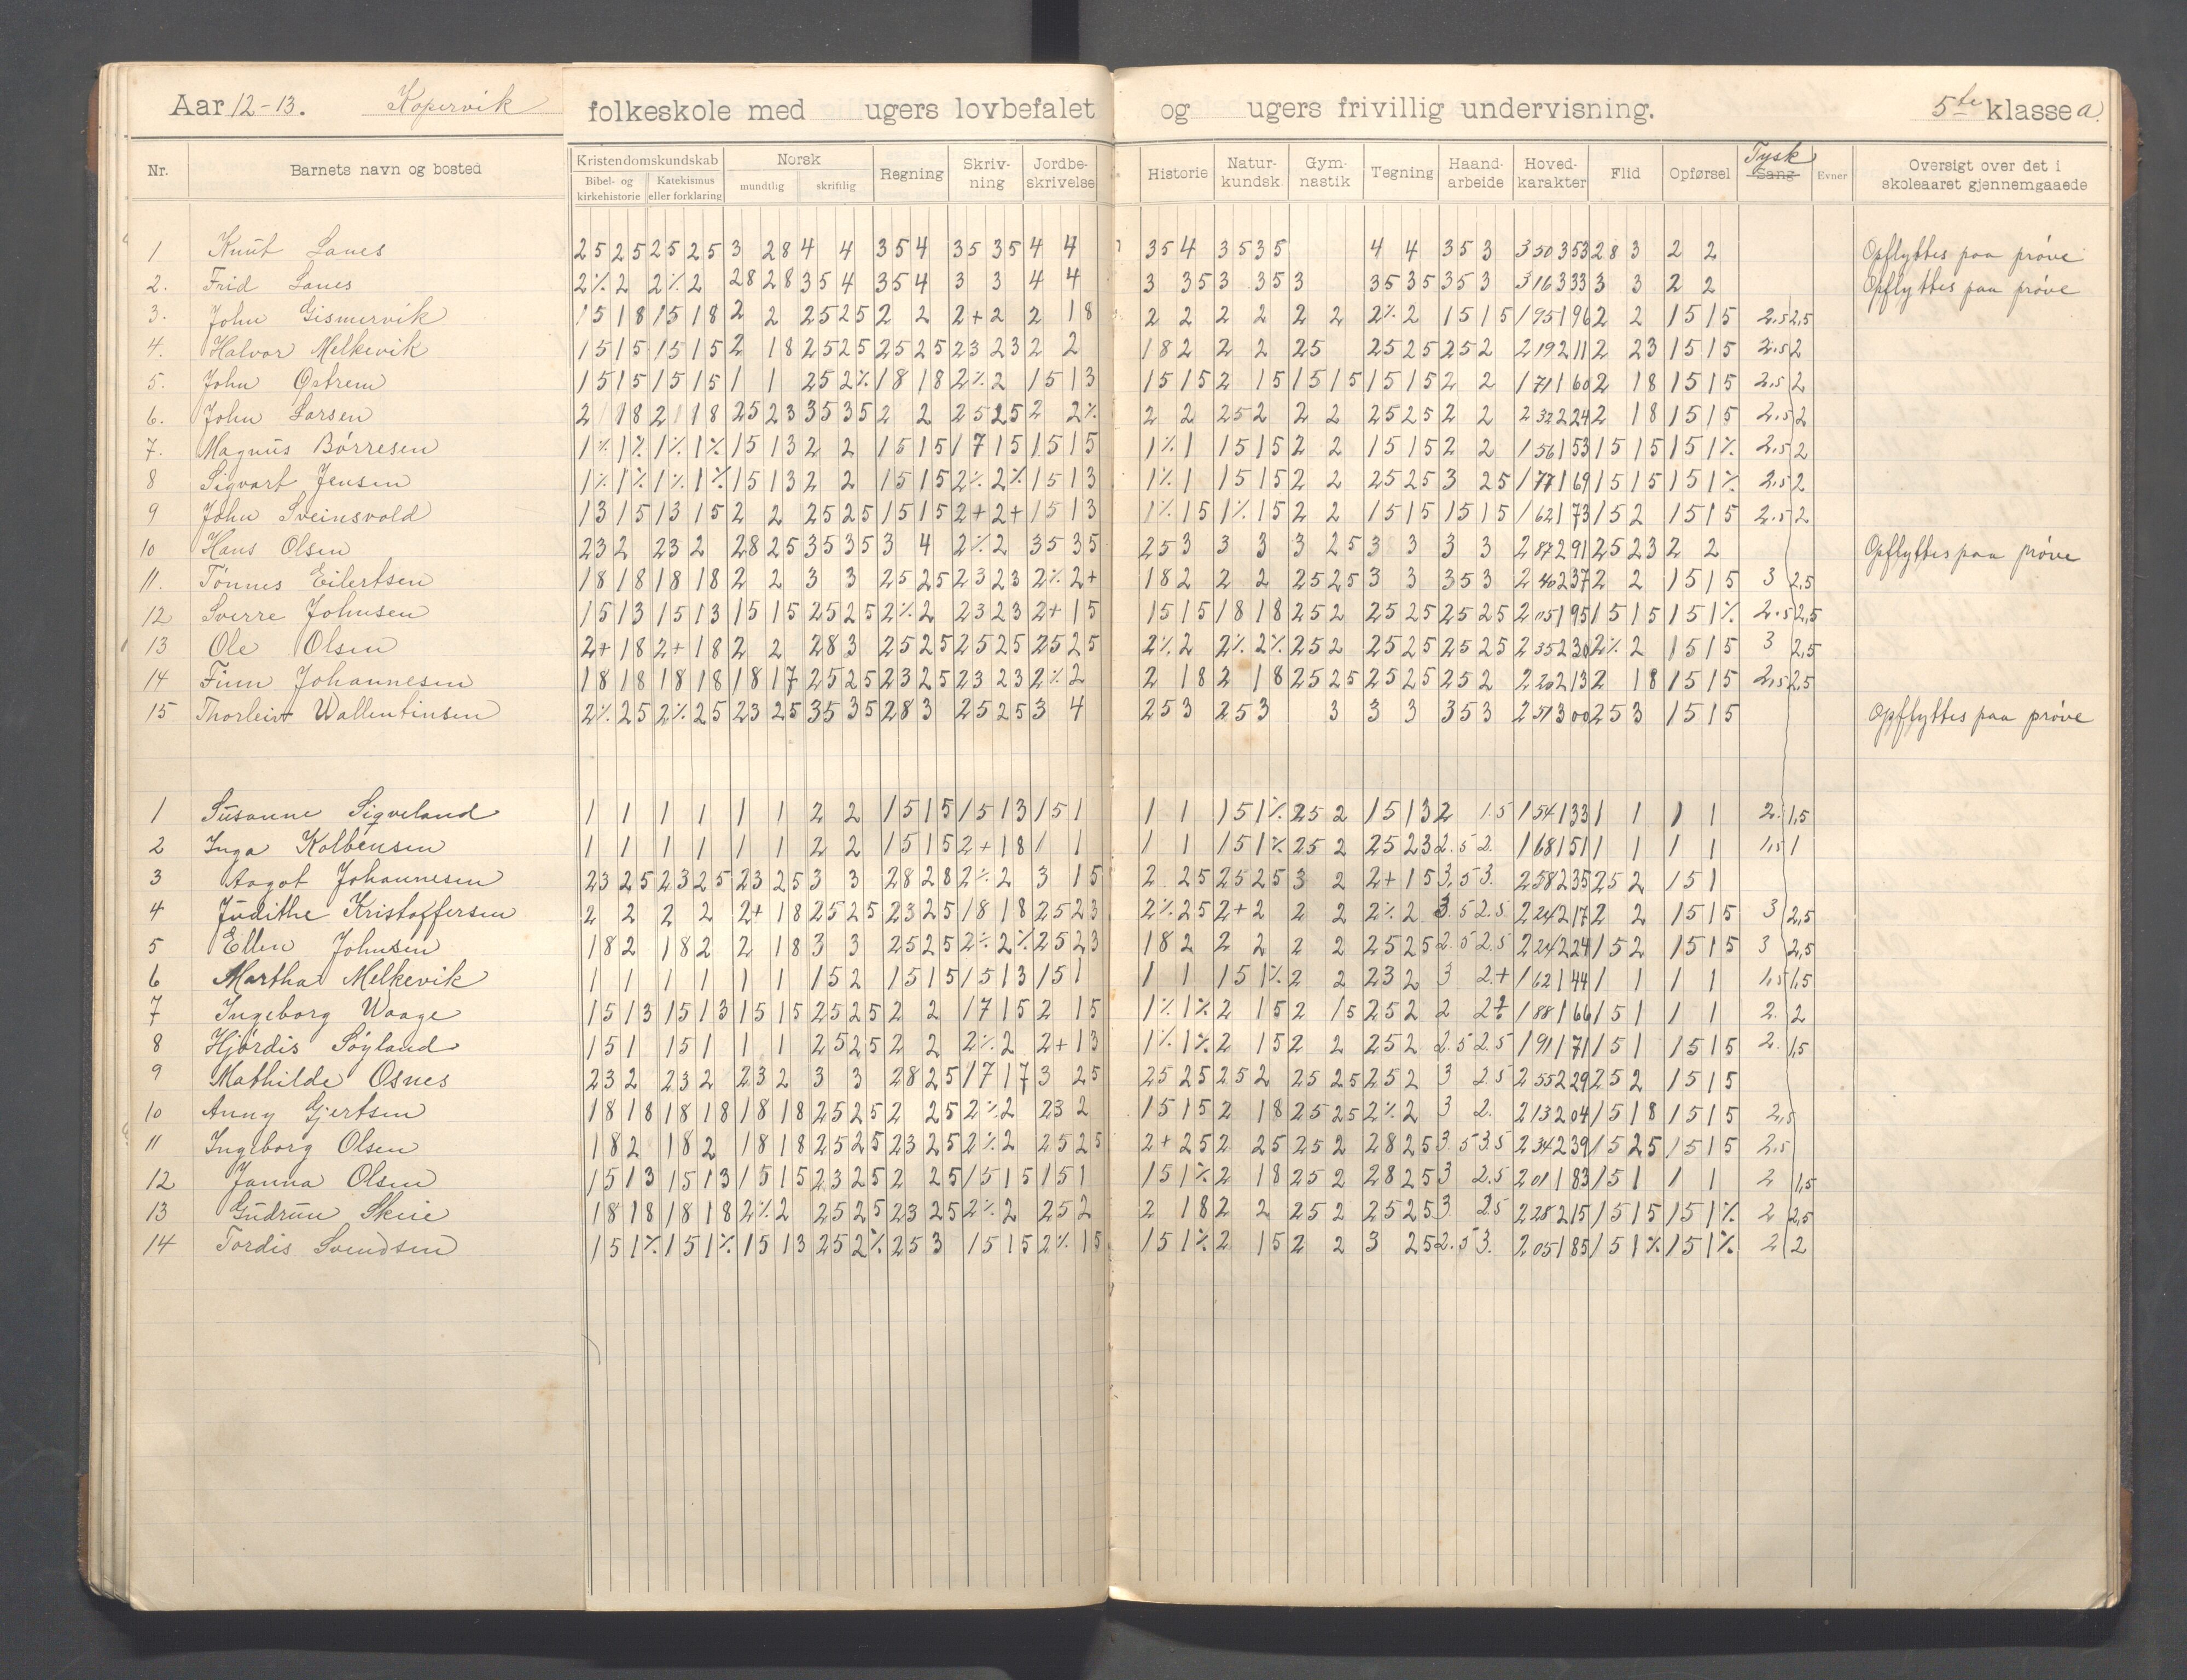 Aar 12-13. Kopervik folkeskole med ugers lovbefalet og ugers frivillig undervisning. 5te klasse a.
Nr. Barnets navn og bosted Kristendomskundskab Norsk Regning Skriv-ning Jordbe-skrivelse Historie Natur-kundsk. Gym-nastik Tegning Haand-arbeide Hoved-karakter Flid Opførsel Tysk Sang Evner Oversigt over det i skoleaaret gjennemgaaede
Bibel- og kirkehistorie Katekismus eller forklaring mundtlig skriftlig
1 Knut Lanes 25 25 25 25 3 28 4 4 35 4 35 35 4 4 35 4 35 35 4 4 35 3 350 353 28 3 2 2 Opflyttes paa prøve
2. Frid Lanes 2% 2 2% 2 28 28 35 4 35 4 3 3 4 4 3 35 3 35 3 35 35 35 3 316 333 3 3 2 2 Opflyttes paa prøve
3. John Gismervik 15 18 15 18 2 2 25 25 2 2 2+ 2 2 18 2 2 2 2 2 2 2% 2 15 15 195 196 2 2 15 15 2,5 2,5
4. Halvor Melkevik 15 15 15 15 2 18 25 25 25 25 23 23 2 2 18 2 2 2 25 25 25 25 2 219 211 2 23 15 15 2,5 2
5. John Østrem 15 15 15 15 1 1 25 2% 18 18 2% 2 15 13 15 15 2 15 15 15 15 15 2 2 171 160 2 18 15 15 2,5 2
6. John Larsen 2 18 2 18 25 23 35 35 2 2 25 25 2 2% 2 2 25 2 2 2 25 25 2 2 232 224 2 18 15 15 2,5 2
7. Magnus Børresen 1% 1% 1% 1% 15 13 2 2 15 15 17 15 15 15 1% 1 15 15 2 2 15 15 2 2 156 153 15 15 15 1% 2,5 2
8 Sigvart Jensen 1% 1% 1% 1% 15 13 2 2 15 15 2% 2% 15 13 1% 1 15 15 2 2 25 25 3 25 177 169 15 15 15 1% 2,5 2
9 John Sveinsvold 13 15 13 15 2 2 25 25 15 15 2+ 2+ 15 13 1% 15 1% 15 2 2 15 15 15 15 162 173 15 2 15 15 2,5 2
10 Hans Olsen 23 2 23 2 28 25 35 35 3 4 2% 2 35 35 25 3 3 3 3 25 3 3 3 3 287 291 25 23 2 2 Opflyttes paa prøve
11. Tønnes Eilertsen 18 18 18 18 2 2 3 3 25 25 23 23 2% 2+ 18 2 2 2 25 25 3 3 35 3 240 237 2 2 15 15 3 2,5
12 Sverre Johnsen 15 13 15 13 15 15 25 25 2% 2 23 23 2+ 15 15 15 18 18 25 2 25 25 25 25 205 195 15 15 15 1% 2,5 2,5
13 Ole Olsen 2+ 18 2+ 18 2 2 28 3 25 25 25 25 25 25 2% 2 2% 2% 25 2 25 25 25 25 235 230 2% 2 15 15 3 2,5
14 Finn Johannesen 18 18 18 18 18 17 25 25 23 25 23 23 2% 2 2 18 2 18 25 25 25 25 25 2 220 213 2 18 15 15 2,5 2,5
15 Thorleiv Wallentinsen 2% 25 2% 25 23 25 35 35 28 3 25 25 3 4 25 3 25 3 3 3 3 35 3 300 25 3 15 15 Opflyttes paa prøve
1 Susanne Sigveland 1 1 1 1 1 1 2 2 15 15 15 13 15 1 1 1 15 1% 25 2 15 13 2 1.5 154 133 1 1 1 1 2. 1,5
2 Inga Kolbensen 1 1 1 1 1 1 2 2 15 15 2+ 18 1 1 1 1 15 1% 25 2 25 23 2.5 2. 168 151 1 1 1 1 1,5 1
3 Aagot Johannesen 23 25 23 25 23 25 3 3 28 28 2% 2 3 15 2 25 25 25 3 2 2+ 15 3,5 3. 258 235 25 2 15 1
4 Judithe Kristoffersen 2 2 2 2 2+ 18 25 25 23 25 18 18 25 23 2% 25 2+ 2 2 2 2% 2 3.5 2.5 224 217 2 2 15 15 3 2,5
5 Ellen Johnsen 18 2 18 2 2 18 3 3 25 25 2% 2% 25 23 18 2 2 2 2 2 25 25 2.5 2.5 224 224 15 2 15 15 3 2,5
6 Martha Melkevik 1 1 1 1 1 1 15 2 15 15 15 13 15 1 1 1 15 1% 2 2 23 2 3 2+ 162 144 1 1 1 1 1,5 1,5
7 Ingeborg Waage 15 13 15 13 15 15 25 25 2 2 17 15 2 15 1% 1% 2 15 2 15 25 2 2 2+ 188 166 15 1 1 1 2. 2
8 Hjørdis Søyland 15 1 15 1 1 1 25 25 2 2 2% 2 2+ 13 1% 1% 2 15 2 2 25 2 2.5 2.5 191 171 15 1 15 15 2. 1,5
9 Mathilde Osnes 23 2 23 2 23 2 3 3 28 25 17 17 3 25 25 25 25 2 25 25 25 2 3 2.5 255 229 25 2 15 15
10 Anny Gjertsen 18 18 18 18 18 18 25 25 2 25 2% 2 23 2 15 15 2 18 25 25 2% 2 3 2. 213 204 15 18 15 15 2,5
11 Ingeborg Olsen 18 2 18 2 18 18 25 25 23 25 2% 2 25 25 2+ 25 2 25 25 2 28 25 3.5 3.5 234 239 15 25 15 15 2,5
12 Janna Olsen 15 13 15 13 15 15 23 25 2 25 15 15 15 1 15 1% 2 18 25 2 28 25 3 2.5 201 183 15 1 1 1 2 1,5
13 Gudrun Skeie 18 18 18 18 2% 2 25 25 23 25 2% 2 25 2 2 18 2 2 25 2 25 25 3 2.5 228 215 15 15 15 1% 2 2,5
14 Tordis Svendsen 15 1% 15 1% 15 13 25 2% 25 3 15 15 2% 15 15 1% 2 15 2 2 3 25 2.5 3. 205 185 15 1% 15 1% 2 2